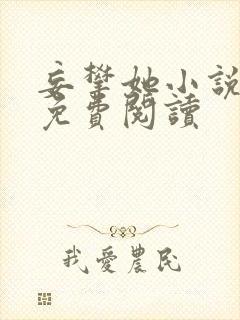 妄攀她小說
免費閱讀
我愛農民